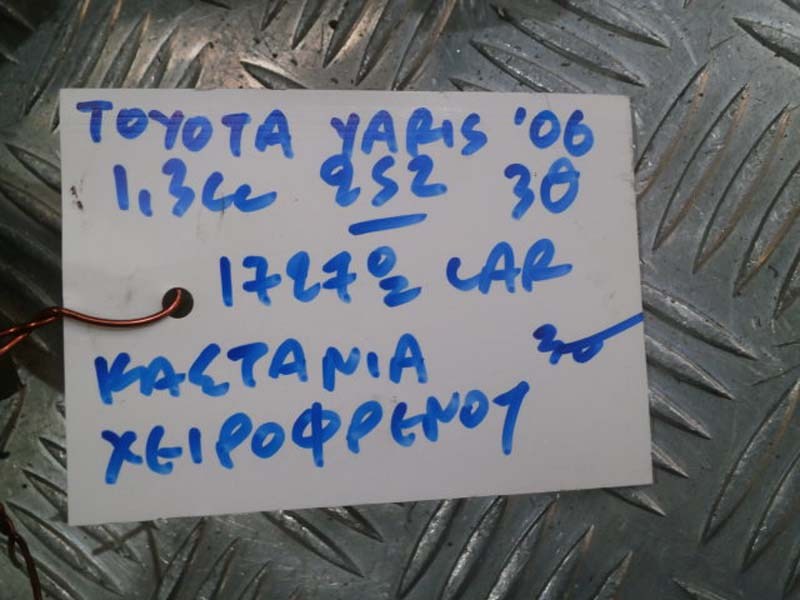 TOYOTA YARIS '06
1,3cc 2S2 3θ
CAR
30
ΚΑΣΤΑΝΙΑ
ΧΕΙΡΟΦΡΕΝΟΥ